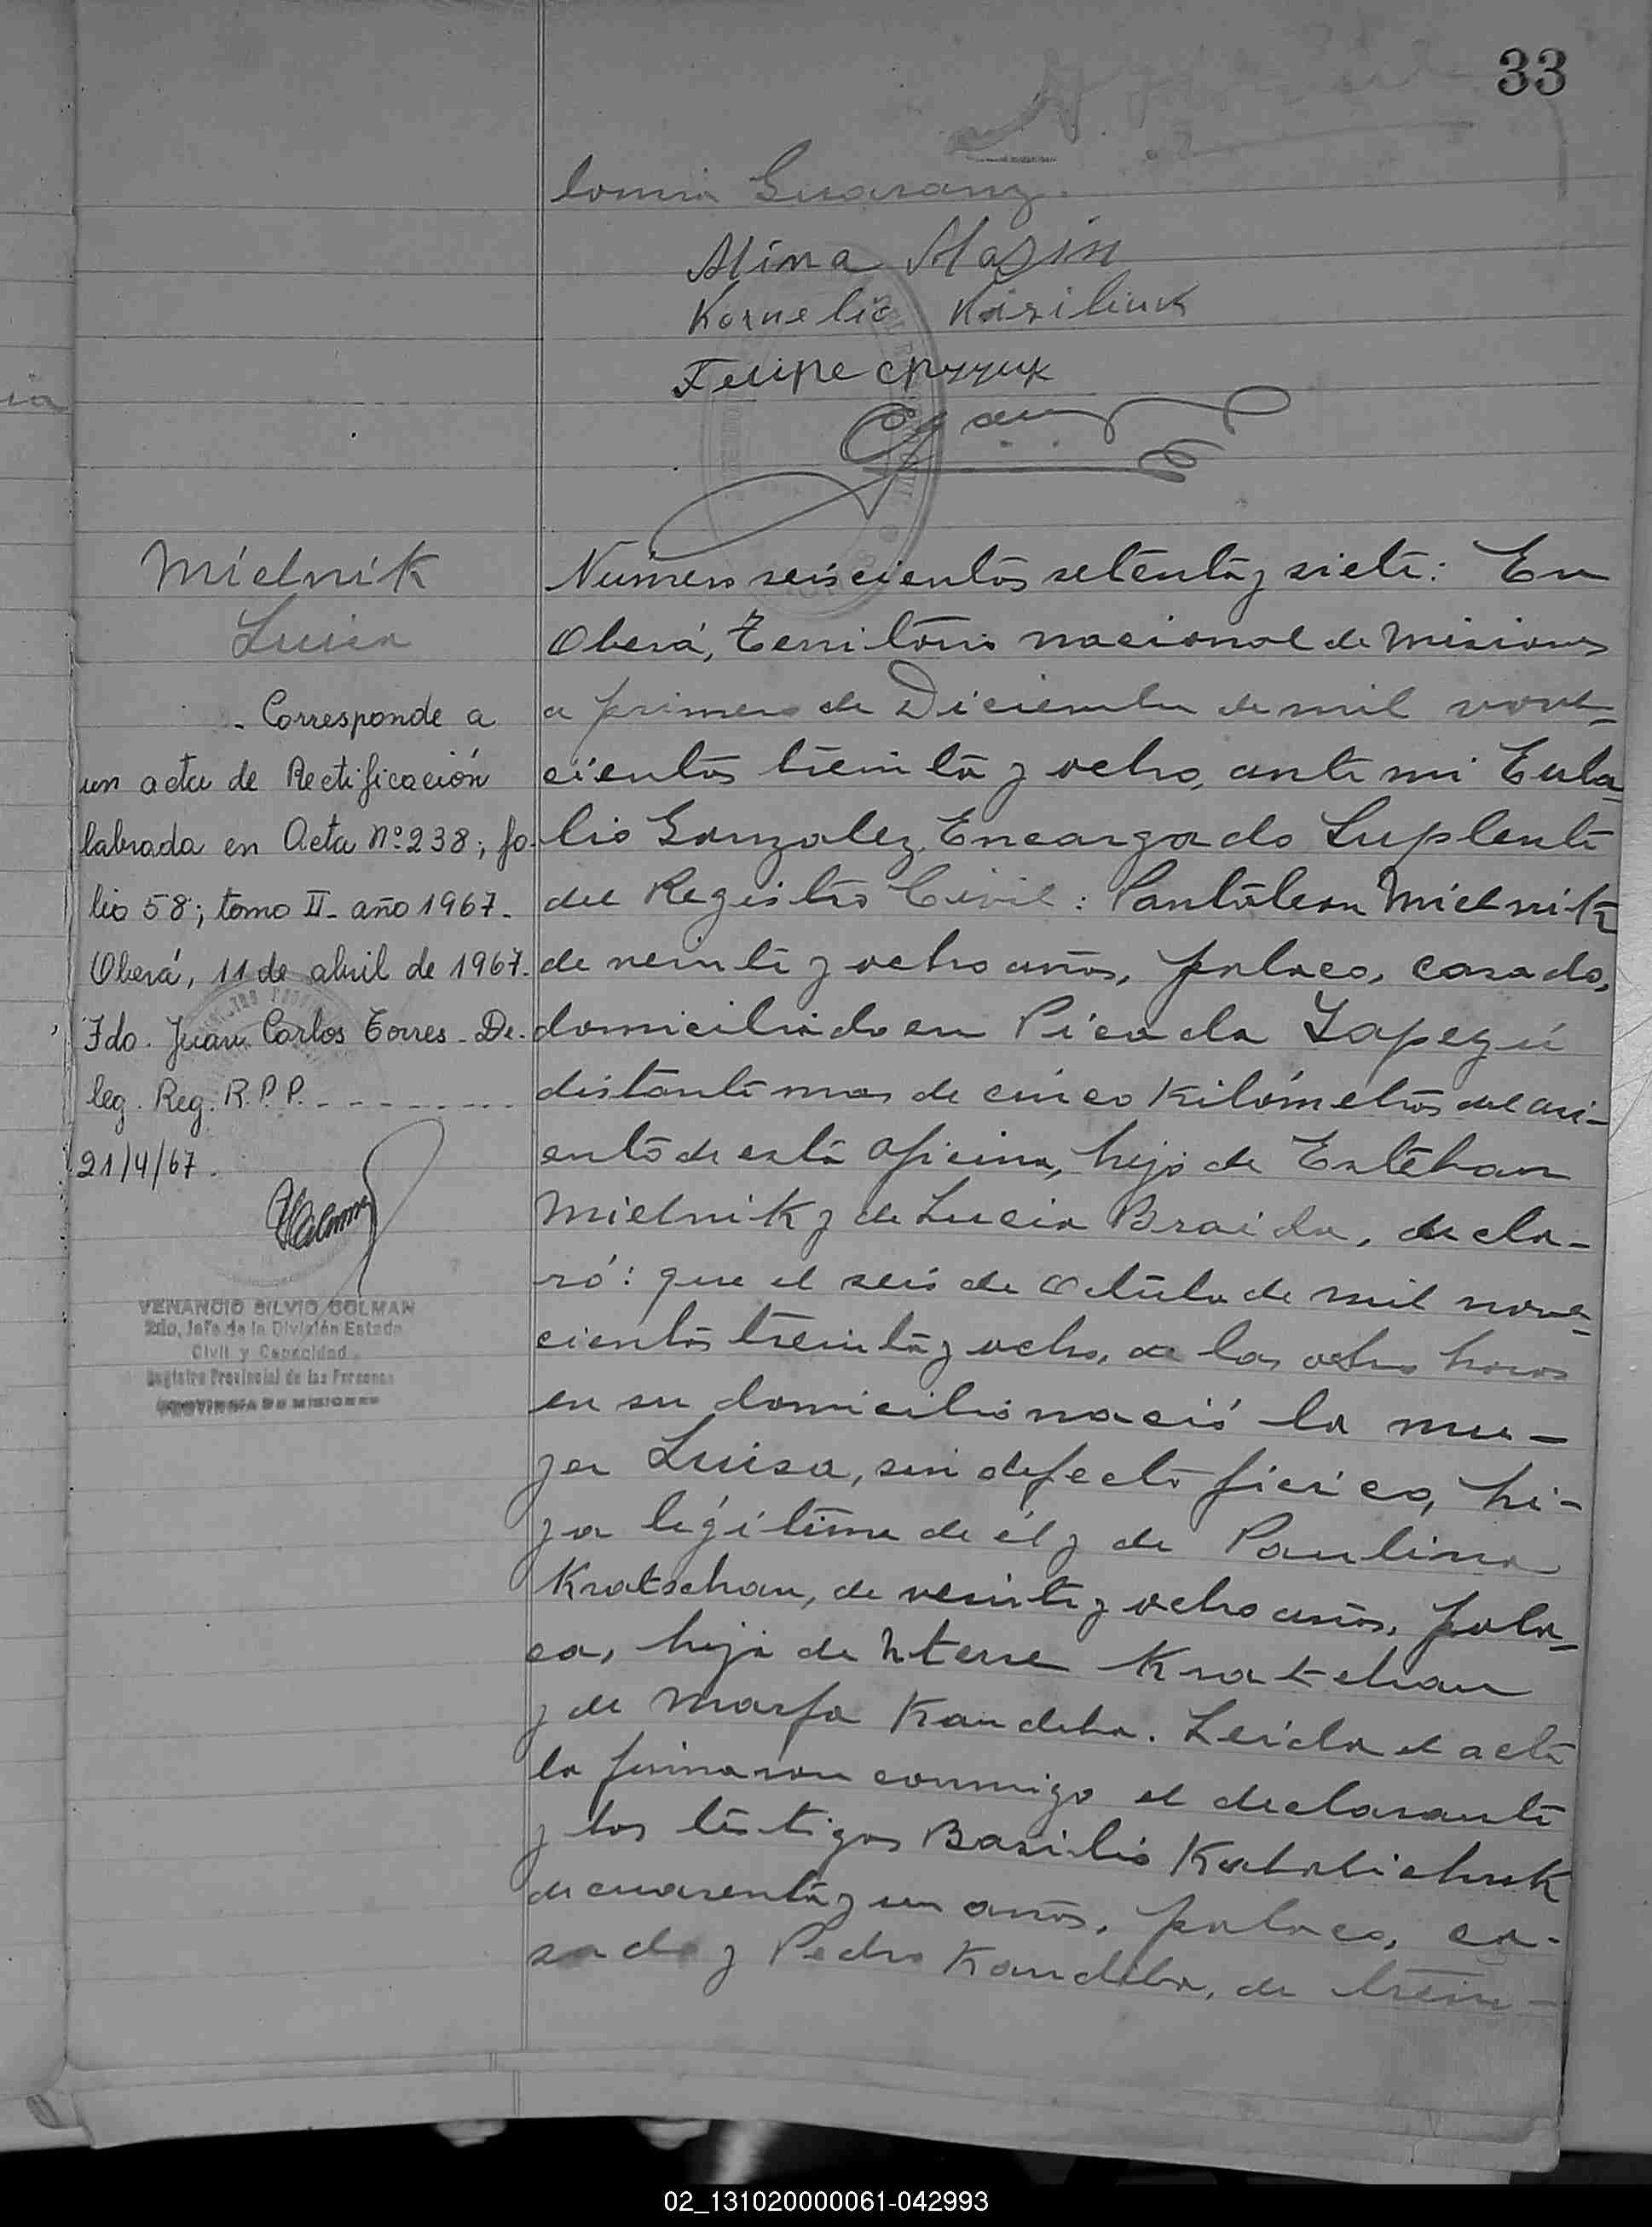 33
lonia Guarany.
Mina Masin
Kornelio Kasiliuk
Felipe
Mielnik
Luisa
- Corresponde a
un acta de Rectificación
labrada en Acta Nº 238; fo-
lio 58; tomo II - año 1967.
Oberá, 11 de abril de 1967.
Fdo. Juan Carlos Torres - De-
leg. Reg. R.P.P. - - - - - - - - -
21/4/67.
VENANCIO SILVIO COLMAN
2do. Jefe de la División Estado
Civil y Capacidad
Registro Provincial de las Personas
PROVINCIA DE MISIONES
Número seiscientos setenta y siete: En
Oberá, Territorio nacional de Misiones
a primero de Diciembre de mil nove-
cientos treinta y ocho, ante mi Eula-
lio Gonzalez, Encargado Suplente
del Registro Civil: Pantaleon Mielnik
de veinte y ocho años, polaco, casado,
domiciliado en Picada Yapeyú
distante mas de cinco kilómetros del asi-
ento de esta oficina, hijo de Esteban
Mielnik y de Lucia Braida, decla-
ró: que el seis de Octubre de mil nove-
cientos treinta y ocho, a las ocho horas
en su domicilio nació la mu-
jer Luisa, sin defecto físico, hi-
ja legítima de él y de Paulina
Kratschan, de veinte y ocho años, pola-
ca, hija de Kratchan
y de Marfa Kandeba. Leida el acta
la firmaron conmigo el declarante
y los testigos Basilio
de cuarenta y un años, polaco, ca-
sado y Pedro Kandeba, de trein-
02_131020000061-042993